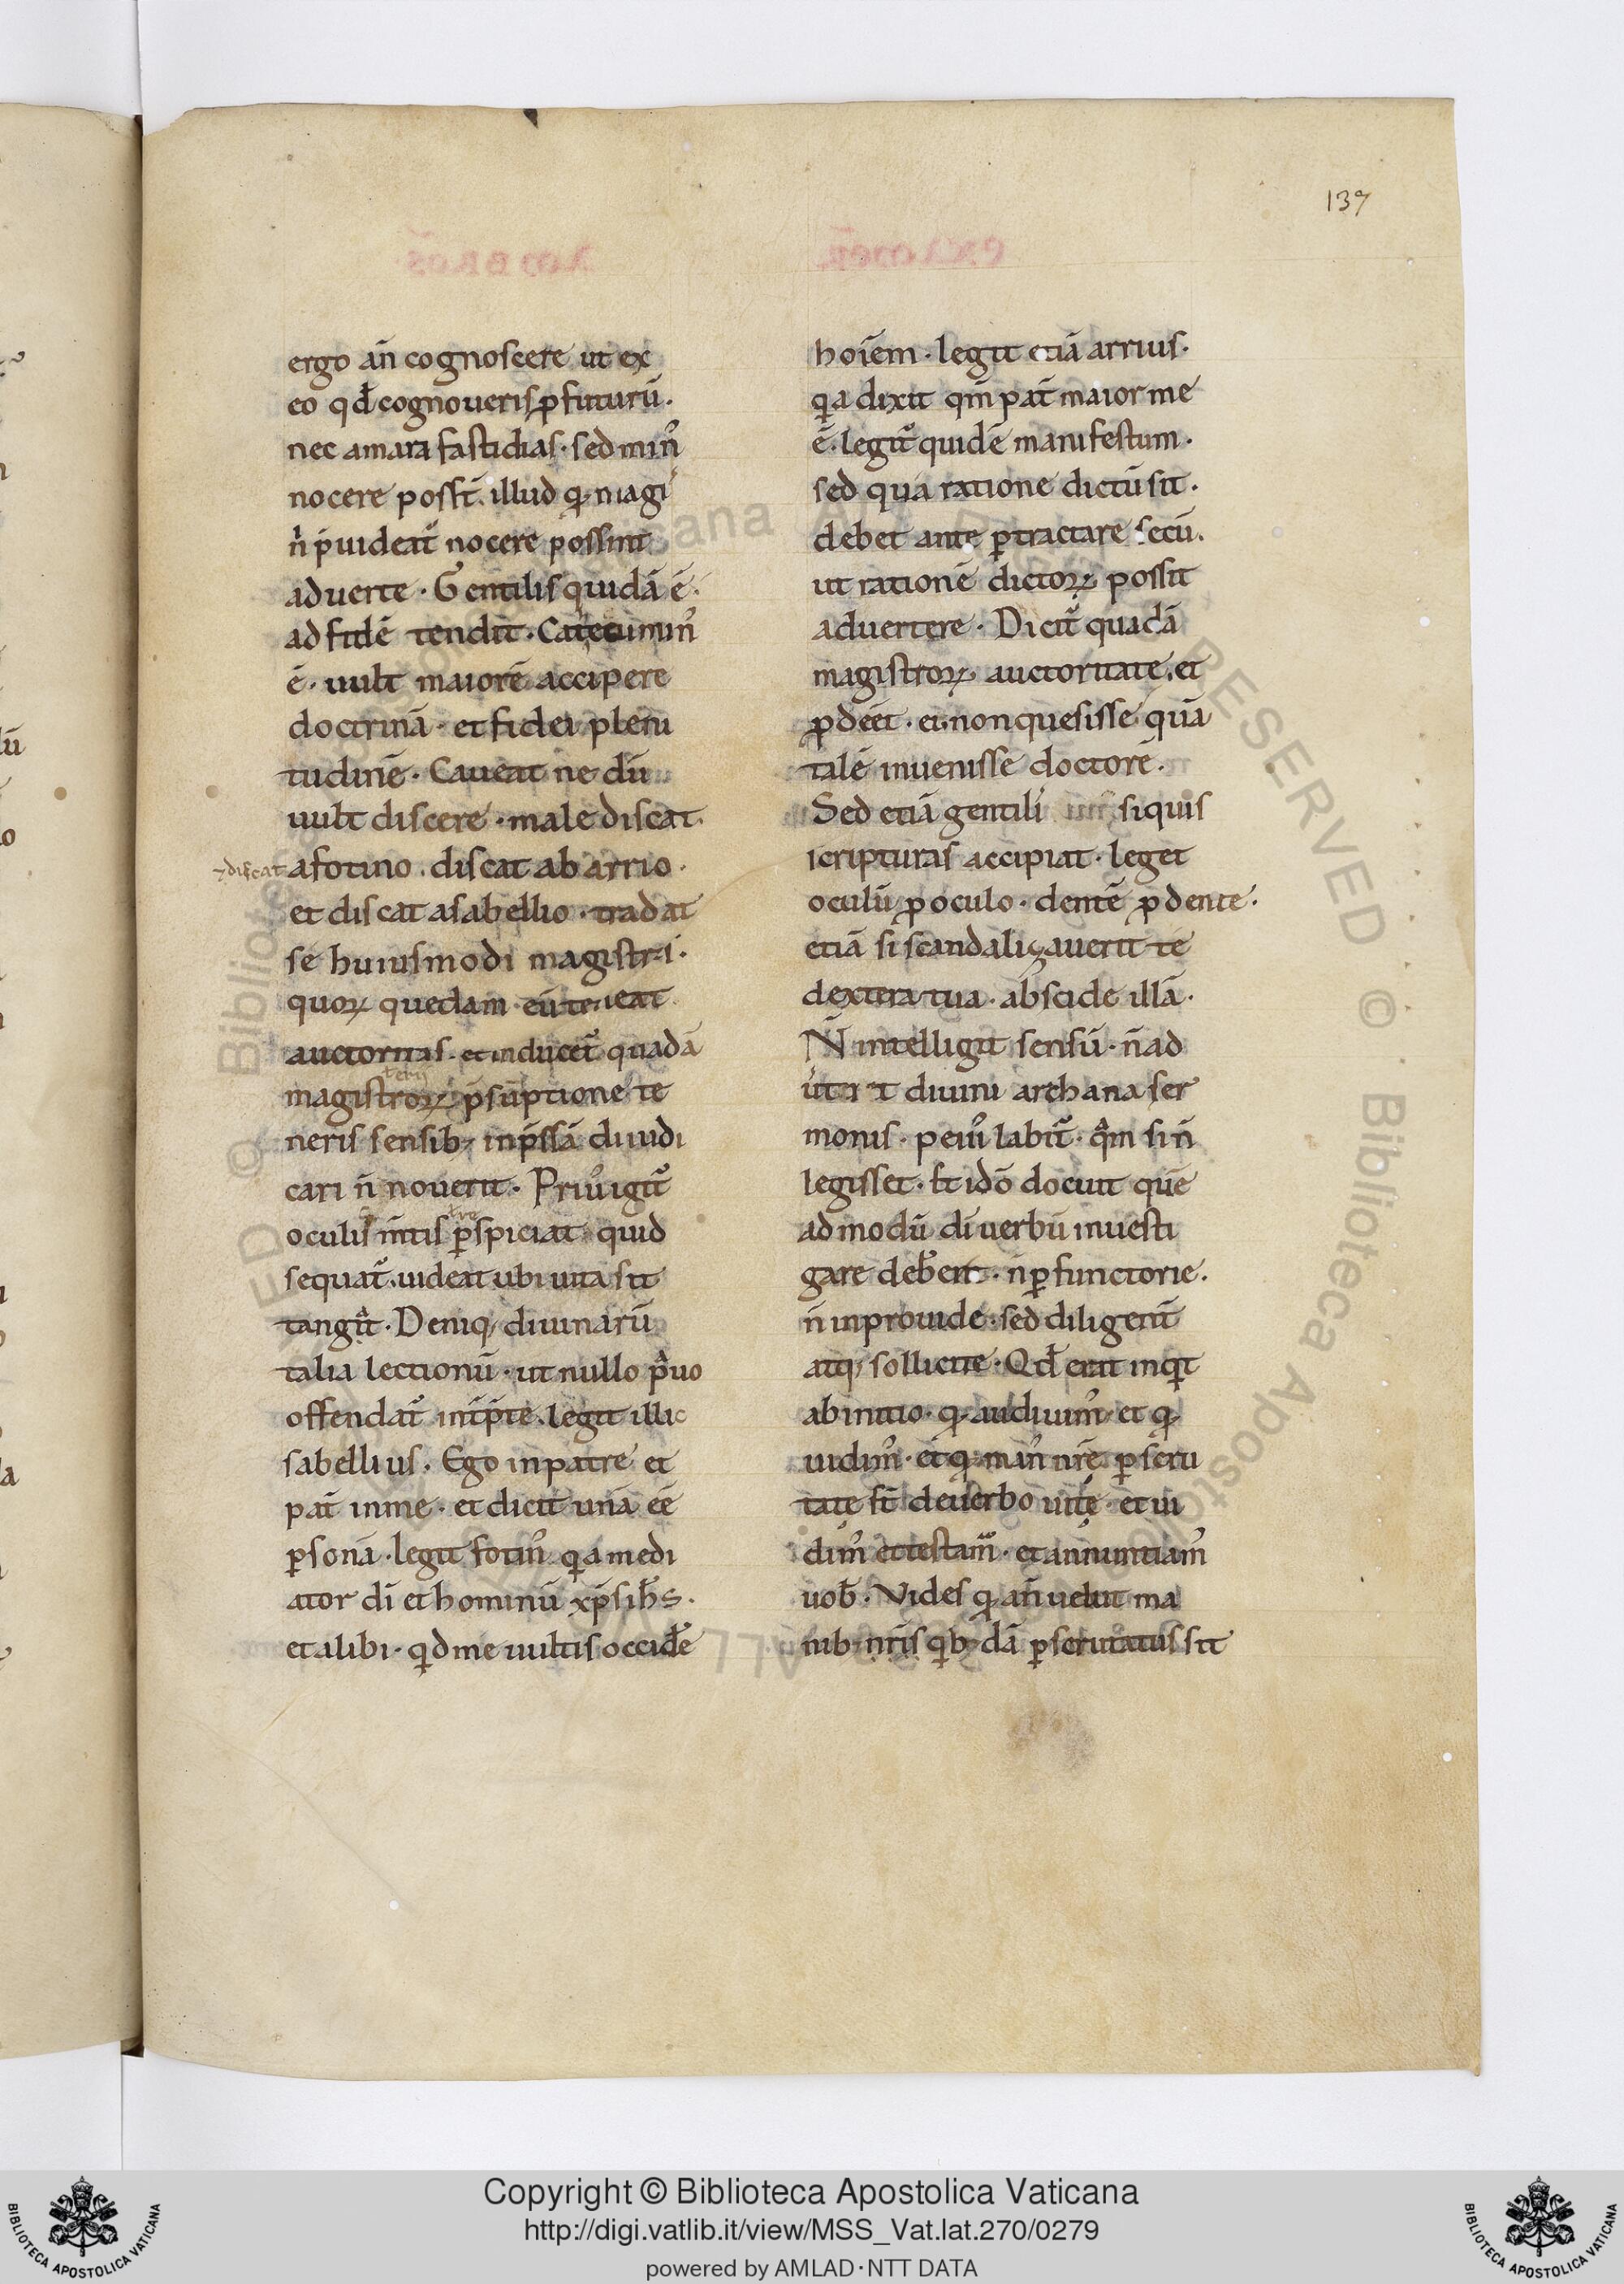 137
ergo añ cognoscere ut ex
eo qđ cognoueris ꝓfuturū.
nec amara fastidias. sed min᷒
nocere possīt. illud q̨ magi
ñ p̄uideat᷑ nocere possint
aduerte. Gentilis quidā ē.
ad fidē tendit. Catecumin᷒
ē. uult maiorē accipere
doctrinā. et fidei pleni
tudinē. Caueat ne dū
uult discere. male discat.
⁊ discat
a fotino. discat ab arrio.
et discat a sabellio. tradat
se huiusmodi magistri.
quoꝝ quedam eū teneat
auctoritas. et inducet᷑ quadā
terii
magistroꝝ p̄sūptione te
neris sensibꝫ inp̄ssā diiudi
cari ñ nouerit. Pri᷒ igit᷑
tre
oculis m̄tis ꝑspiciat quid
sequat᷑. uideat ubi uita sit
tangit᷑. Deniqꝫ diuinarū
talia lectionū. ut nullo p̄uo
offendat᷑ int̄p̄te. legit illic
sabellius. Ego in patre et
pat̄ in me. et dicit unā eē
ꝑsonā. legit fotin᷒ qͥa medi
ator dī et hominū xp̄s ih̄s.
et alibi. qͥd me uultis occid̄e
hoīem. legit etiā arrius.
qͥa dixit qm̄ pat̄ maior me
ē. legit᷑ quidē manifestum.
sed qua ratione dictū sit.
debet ante ꝑtractare secū.
ut rationē dictoꝝ possit
aduertere. Dicit᷑ quadā
magistroꝝ auctoritate. et
ꝓdeēt. ei. non quesisse quā
talē inuenisse doctorē.
Sed etiā gentili si quis
scripturas accipiat. leget
oculū ꝓ oculo. dentē ꝓ dente.
etiā si scandaliçauerit te
dextera tua. abscide illā.
Ñ intelligit sensū. ñ ad
uertit diuini archana ser
monis. peiu᷒ labit᷑. qͣm si ñ
legisset. ł idō docuit quē
admodū dī uerbū inuesti
gare deb̄ent. ñ ꝑfunctorie.
ñ inprouide. sed diligent̄
atqꝫ sollicite. Qđ erat inqͥt
ab initio. q̨ audiuim᷒. et q̨
uidim᷒. et q̨ man᷒ nr̄ę ꝑscru
tate st̄ de uerbo uitę. et ui
dim᷒ et testam᷒. et annuntiam᷒
uob̄. Vides q̨ añ uelut ma
nibꝫ nr̄is qͥbꝫdā ꝑscrutatus sit
Copyright © Biblioteca Apostolica Vaticana
http://digi.vatlib.it/view/MSS_Vat.lat.270/0279
powered by AMLAD·NTT DATA
BIBLIOTECA APOSTOLICA VATICANA
BIBLIOTECA APOSTOLICA VATICANA